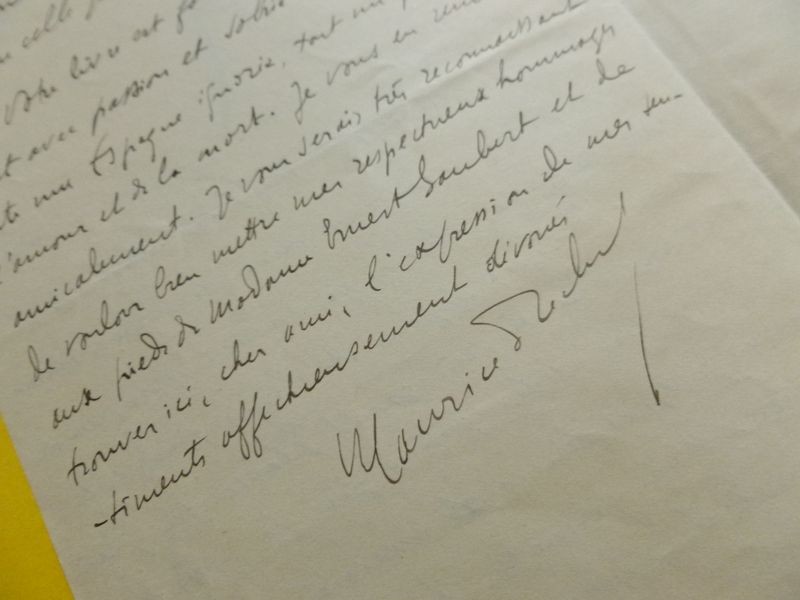 celle
votre livre est
avec passion et
une Espagne ignorée, tout un
l'amour et de la mort. Je vous en
amicalement. Je vous serais très reconnaissant
de vouloir bien mettre mes respectueux hommages
aux pieds de Madame Ernest Gaubert et de
trouver ici, cher ami, l'expression de mes sen-
-timents affectueusement dévoués
Maurice